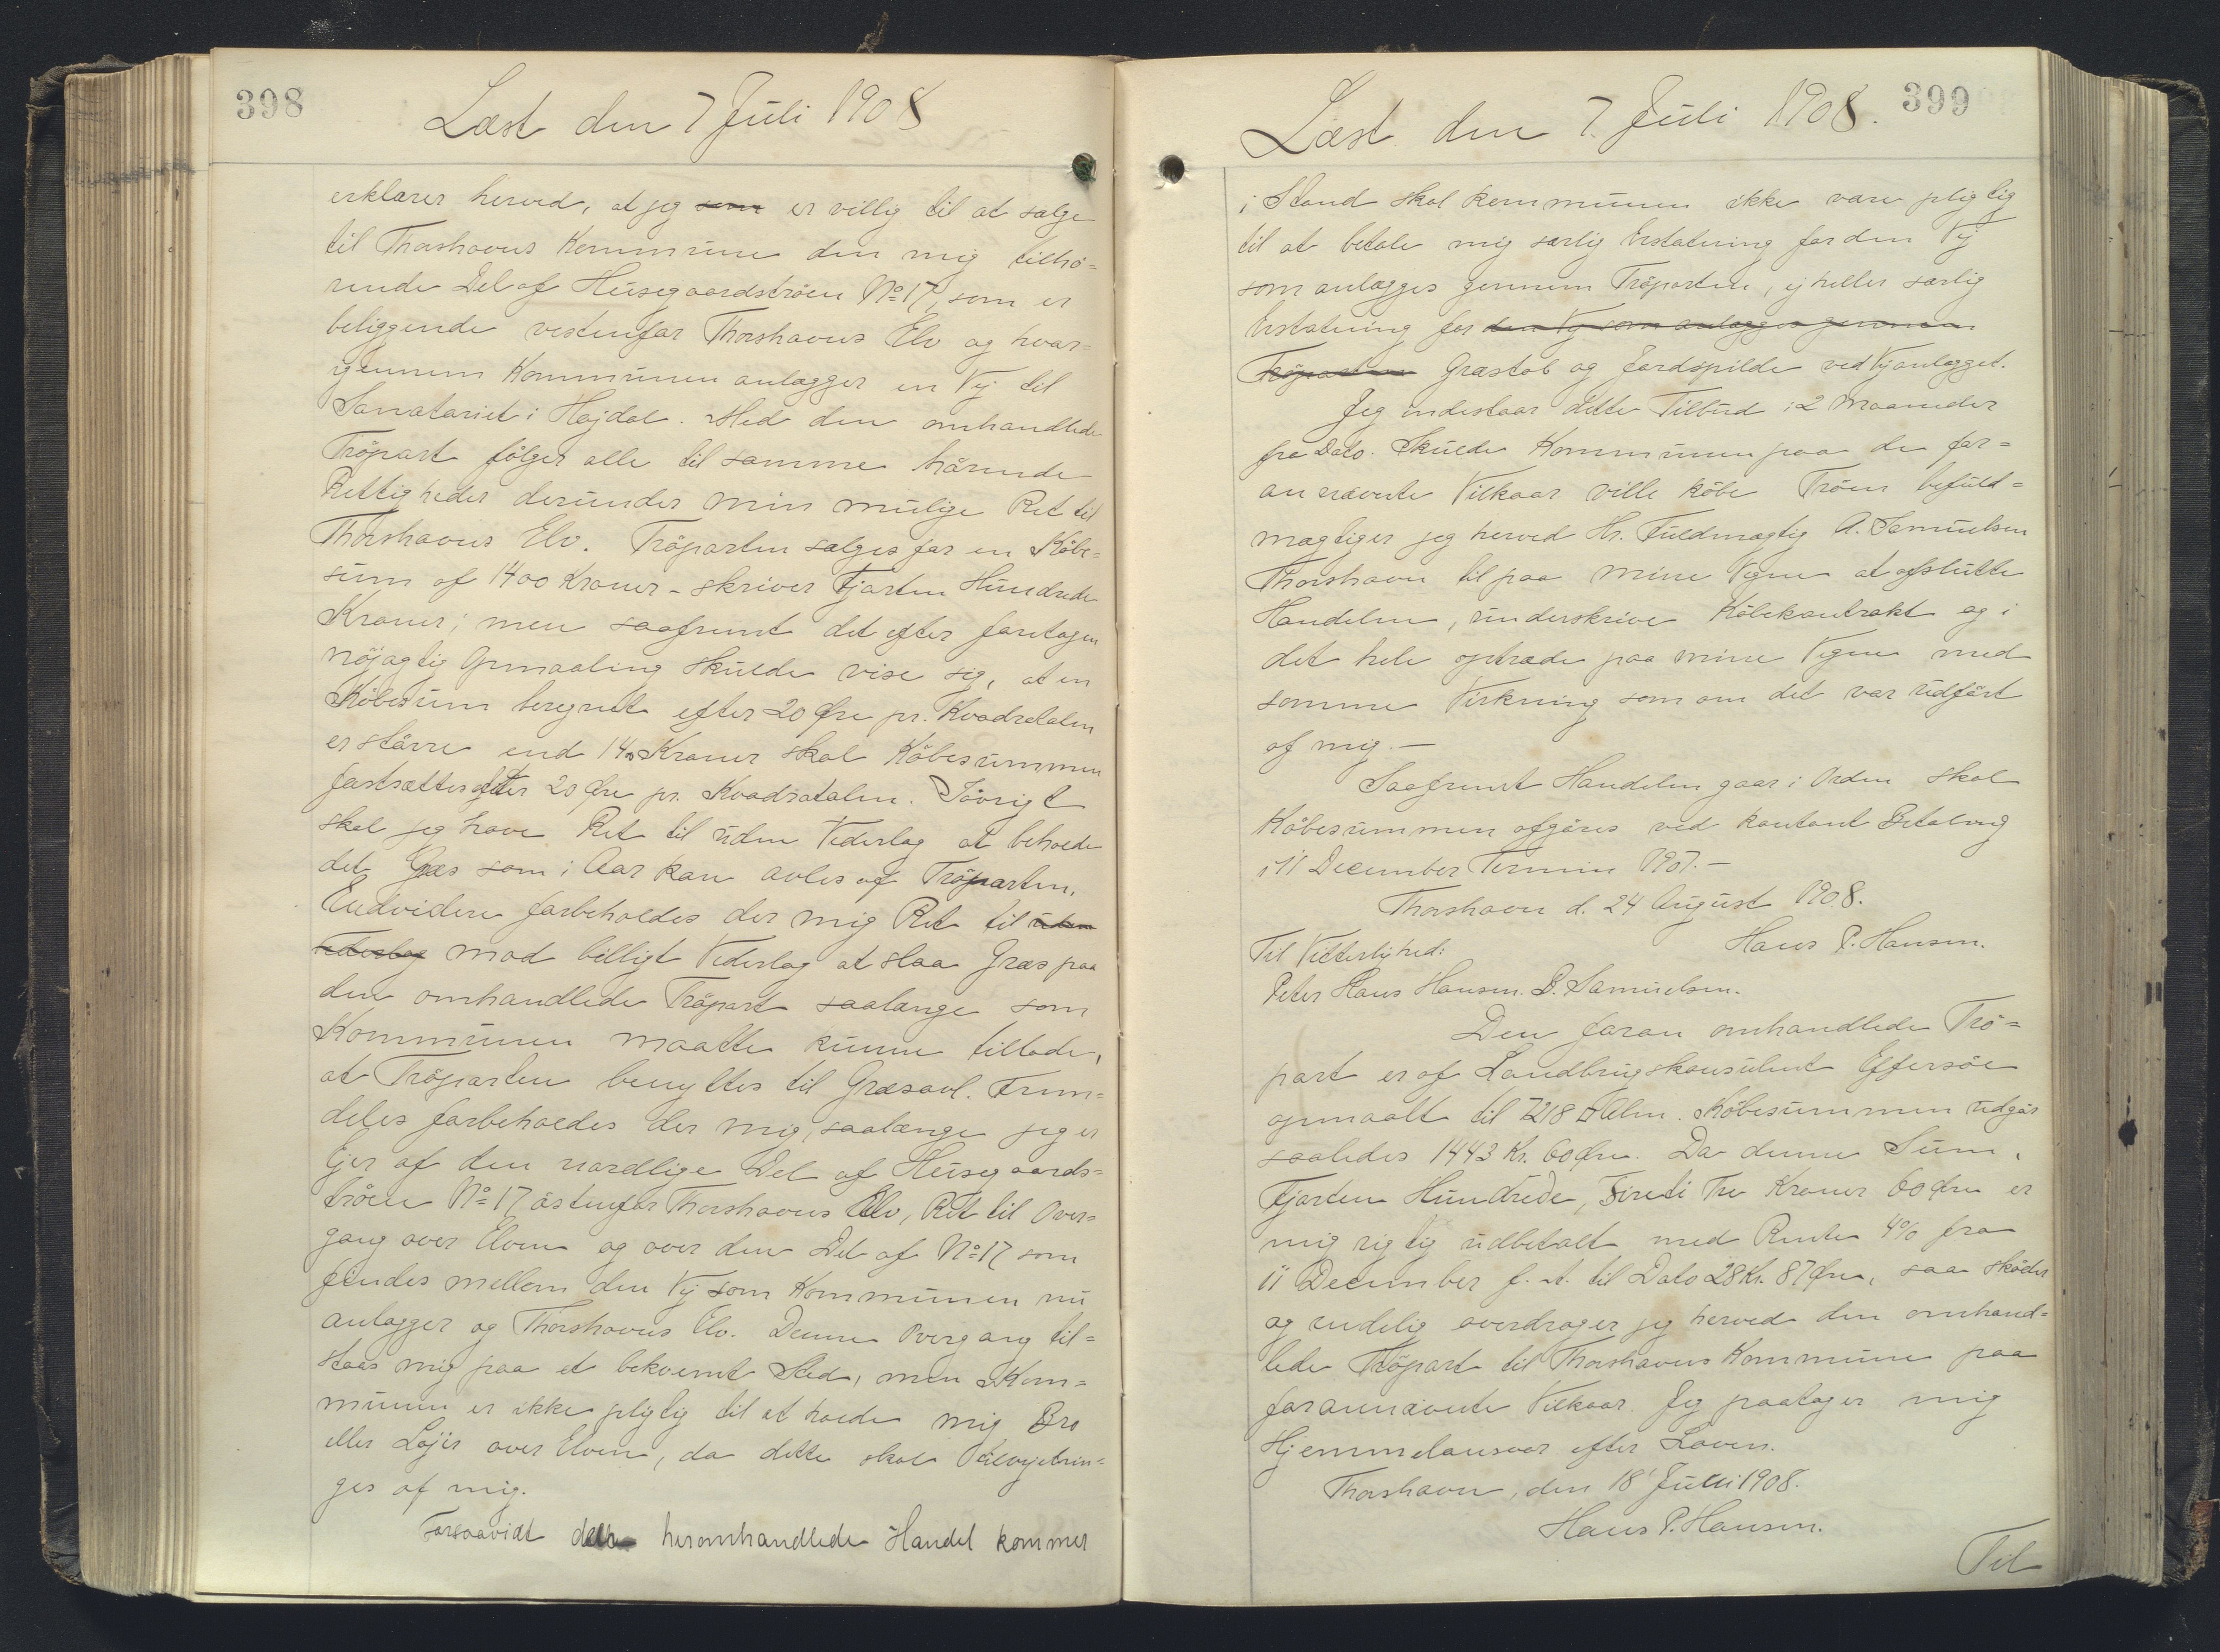 398
Læst den 7 Juli 1908
erklærer herved, at jeg som er villig til at sælge
til Thorshavns Kommune den mig tilhø=
rende Del af Husegaardstrøen No 17, som er
beliggende vestenfor Thorshavns Elv og hvor=
igennem Kommunen anlægger en Vej til
Sanatoriet i Hojdal. Med den omhandlede
Trøpart følger alle til samme hørende
Rettigheder derunder min mulige Ret til
Thorshavns Elv. Trøparten sælges for en Købe=
sum af 1400 Kroner - skriver Fjorten Hundrede
Kroner; men saafremt det efter foretagen
nøjagtig Opmaaling skulde vise sig, at en
Købesum beregnet efter 20 Øre pr. Kvadratalen
er større end 1400 Kroner skal Købesummen
fastsættes efter 20 Øre pr. Kvadratalen. Iøvrigt
skal jeg have Ret til uden Vederlag at beholde
det Græs som i Aar kan avles af Trøparten.
Endvidere forbeholdes der mig Ret til uden
Vederlag mod billigt Vederlag at slaa Græs paa
den omhandlede Trøpart saalænge som
Kommunen maatte kunne tillade,
at Trøparten benyttes til Græsavl. Frem=
deles forbeholdes der mig, saalænge jeg er
Ejer af den nordlige Del af Husegaards=
trøen No 17 østenfor Thorshavns Elv, Ret til Over=
gang over Elven og over den Del af No 17 som
findes mellem den Vej som Kommunen nu
anlægger og Thorshavns Elv. Denne Overgang til=
staas mig paa et bekvemt Sted, men Kom=
munen er ikke pligtig til at holde mig Bro
eller Lejer over Elven, da dette skal tilvejebrin=
ges af mig.
Forsaavidt dette heromhandlede Handel kommer
399
Læst den 7. Juli 1908.
i Stand skal Kommunen ikke være pligtig
til at betale mig særlig Erstatning for den Vej
som anlægges gennem Trøparten, ej heller særlig
Erstatning for den Vej som anlægges gennem
Trøparten Græstab og Jordspilde ved Vejanlægget.
Jeg indestaar dette Tilbud i 2 Maaneder
fra Dato. Skulde Kommunen paa de for=
an nævnte Vilkaar ville købe Trøen befuld=
mægtiger jeg herved Hr. Fuldmægtig A. Samuelsen
Thorshavn til paa mine Vegne at afslutte
Handelen, underskrive Købekontrakt og i
det hele optræde paa mine Vegne med
samme Virkning som om det var udført
af mig. -
Saafremt Handelen gaar i Orden skal
Købesummen afgøres ved kontant Betaling
i 11 December Termin 1907. -
Thorshavn d. 24 August 1908.
Hans P. Hansen.
Til Vitterlighed:
Peter Hans Hansen. D. Samuelsen.
Den foran omhandlede Trø=
part er af Landbrugskonsulent Effersøe
opmaalt til 7218 □ Alen. Købesummen udgør
saaledes 1443 Kr. 60 Øre. Da denne Sum,
Fjorten Hundrede, Fireti Tre Kroner 60 Øre er
mig rigtig udbetalt med Rente 4% fra
11 December f. A. til Dato 28 Kr. 87 Øre, saa skøder
og endelig overdrager jeg herved den omhand=
lede Trøpart til Thorshavns Kommune paa
forannævnte Vilkaar. Jeg paatager mig
Hjemmelansvar efter Loven.
Thorshavn, den 18' Juni 1908.
Hans P. Hansen.
Til